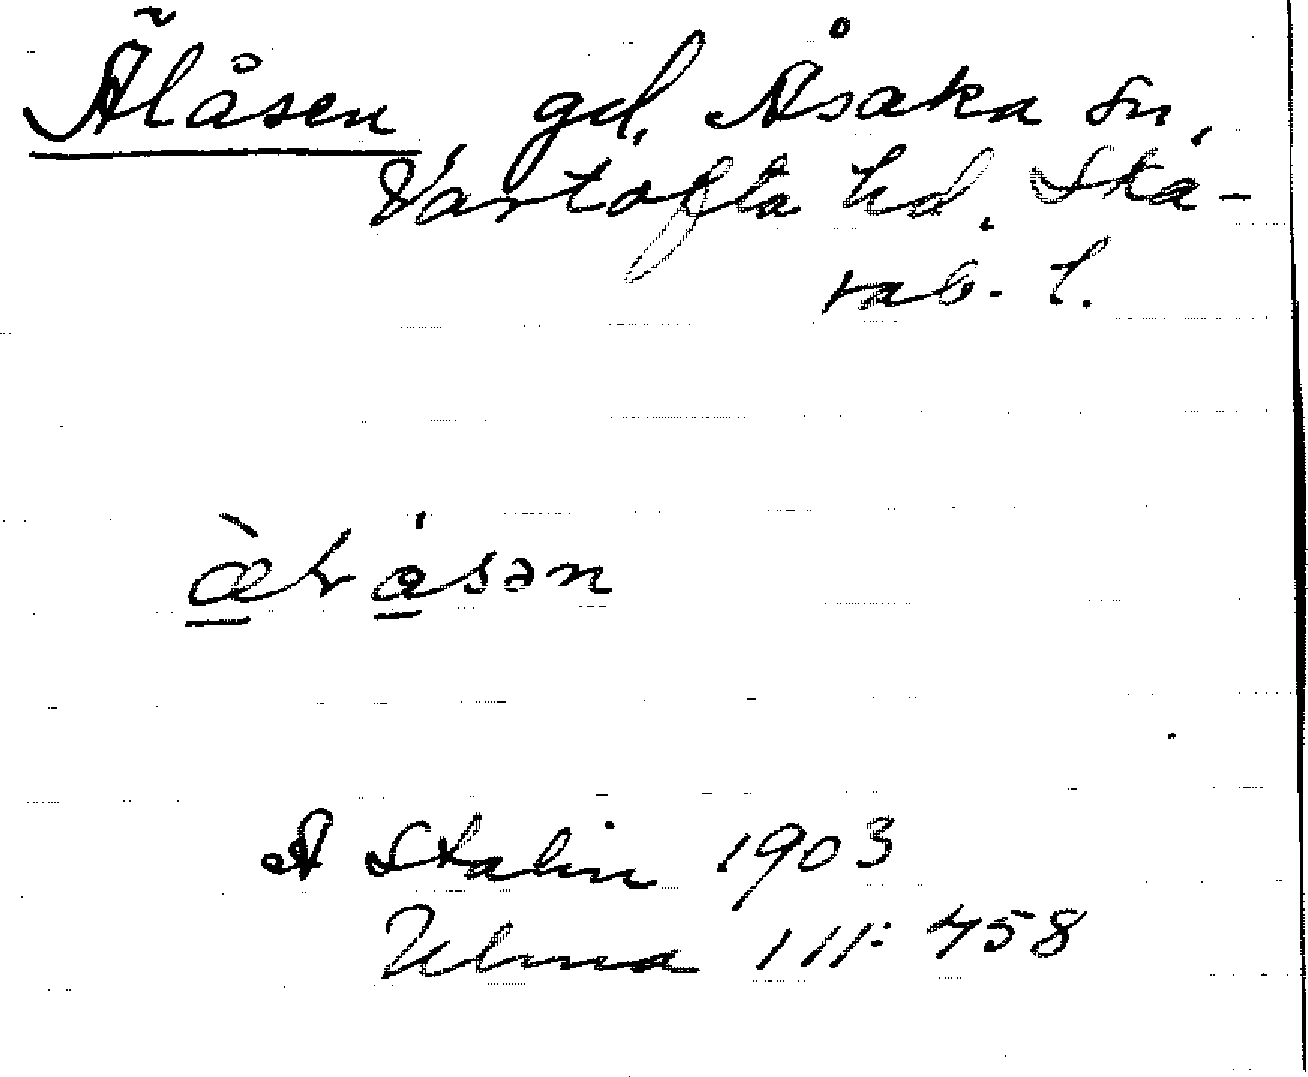 Älåsen gd, Åsaka sn,
Vartofta hd. Ska-
rab. l.
A Stalin 1903
Ulma 111: 458